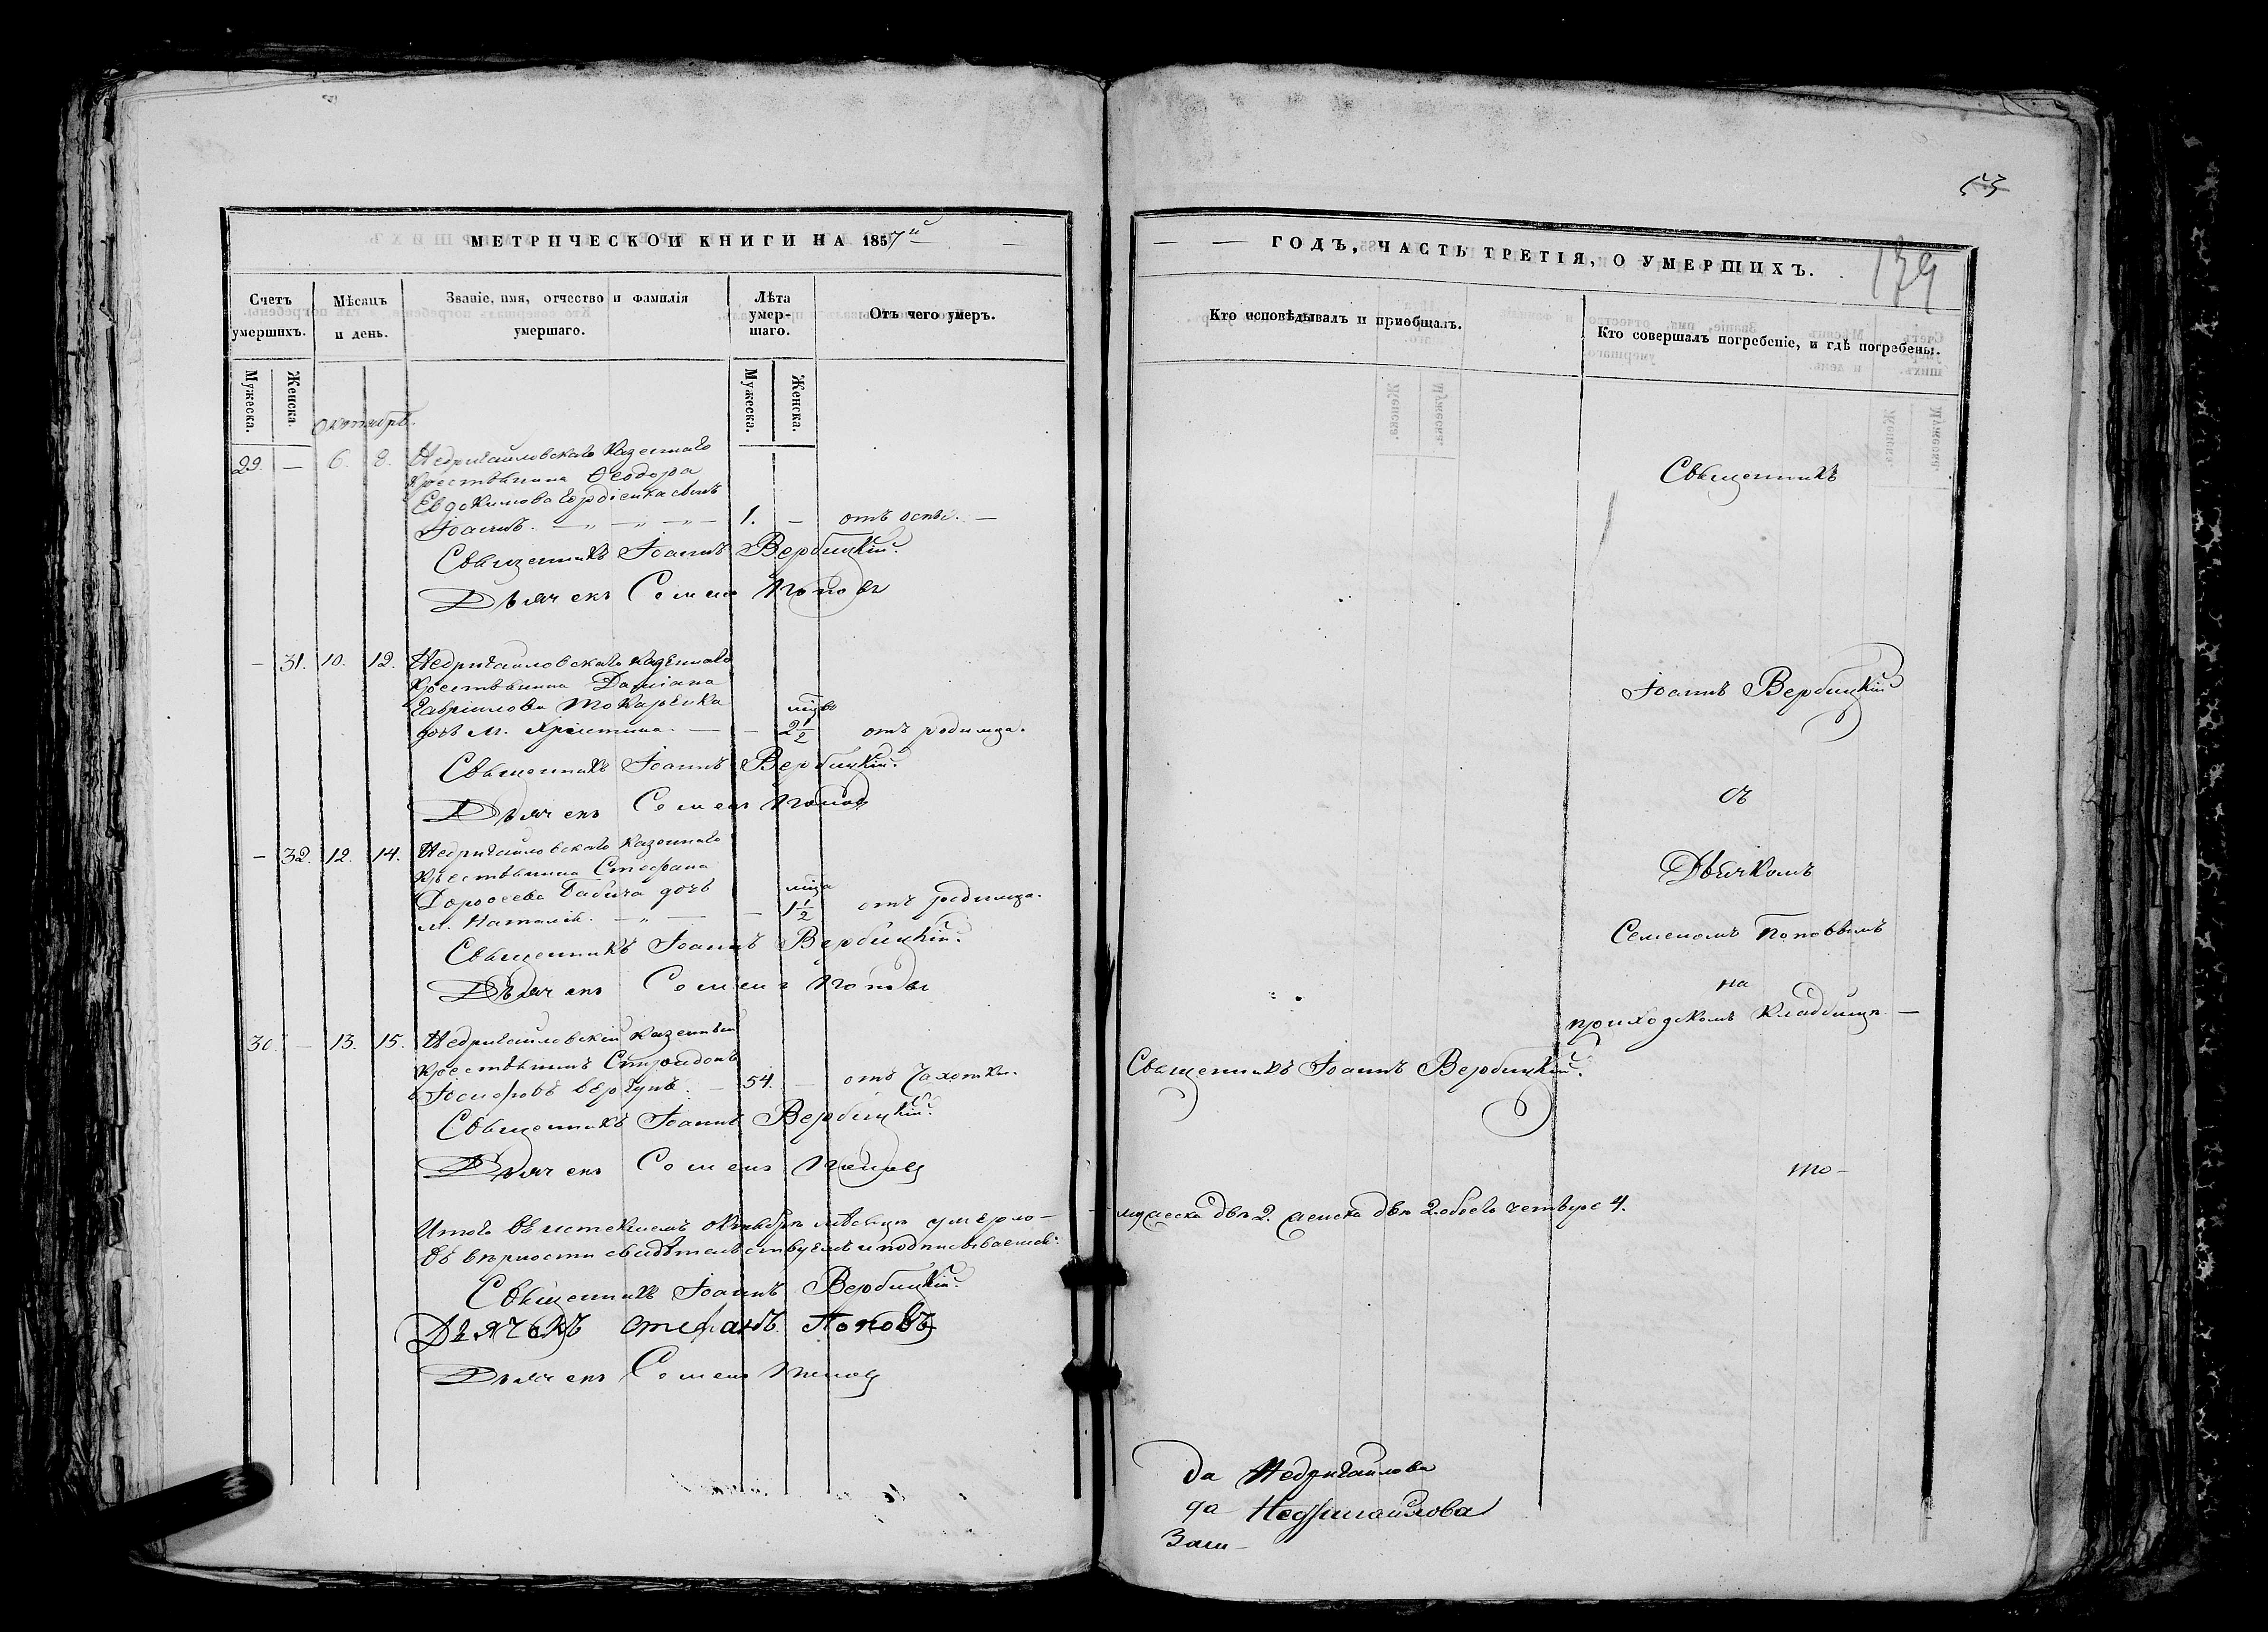 53
139
МЕТРИЧЕСКОЙ КНИГИ НА 1857й
Счетъ умершихъ.
Мѣсяцъ и день.
Званіе, имя, отчество и фамилія умершаго.
Лѣта умер-шаго.
Отъ чего умеръ.
Мужеска.
Женска.
Мужеска.
Женска.
Октябрь.
29 — 6. 8. Недригайловскаго казеннаго
крестьянина Ѳеодора
Евдокимова Гордіенка сынъ
Іоаннъ. — 1. — отъ оспы. —
Священникъ Іоаннъ Вербицкій.
Дьячекъ Семенъ Поповъ
— 31. 10. 12. Недригайловскаго казеннаго
крестьянина Даміана
Гавріилова Токаренка
дочь м. Христина. — — 2 1/2 отъ родимца.
Священникъ Іоаннъ Вербицкій.
Дьячекъ Семенъ Поповъ
— 32. 12. 14. Недригайловскаго казеннаго
крестьянина Стефана
Дороѳеева Бабича дочь
м. Наталія. — — 1 1/2 отъ родимца.
Священникъ Іоаннъ Вербицкій.
Дьячекъ Семенъ Поповъ
30. — 13. 15. Недригайловскій казенный
крестьянинъ Спиридонъ
Іосифовъ Вергунъ. — 54. — отъ чахотки.
Священникъ Іоаннъ Вербицкій.
Дьячекъ Семенъ Поповъ
Итого въ истекшемъ октябрѣ мѣсяцѣ умерло —
Въ вѣрности свидѣтельствуемъ и подписываемся:
Священникъ Іоаннъ Вербицкій.
Дьячекъ Стефанъ Поповъ
Дьячекъ Семенъ Поповъ
ГОДЪ, ЧАСТЬ ТРЕТІЯ, О УМЕРШИХЪ.
Кто исповѣдывалъ и пріобщалъ.
Кто совершалъ погребеніе, и гдѣ погребены.
Священникъ
Іоаннъ Вербицкій
съ
Дьячкомъ
Семеномъ Поповымъ
на
приходскомъ кладбищѣ —
Священникъ Іоаннъ Вербицкій.
то —
мужеска два 2. женска двѣ 2. обоего четверо 4.
да Недригайлова
да Недригайлова
Заш —